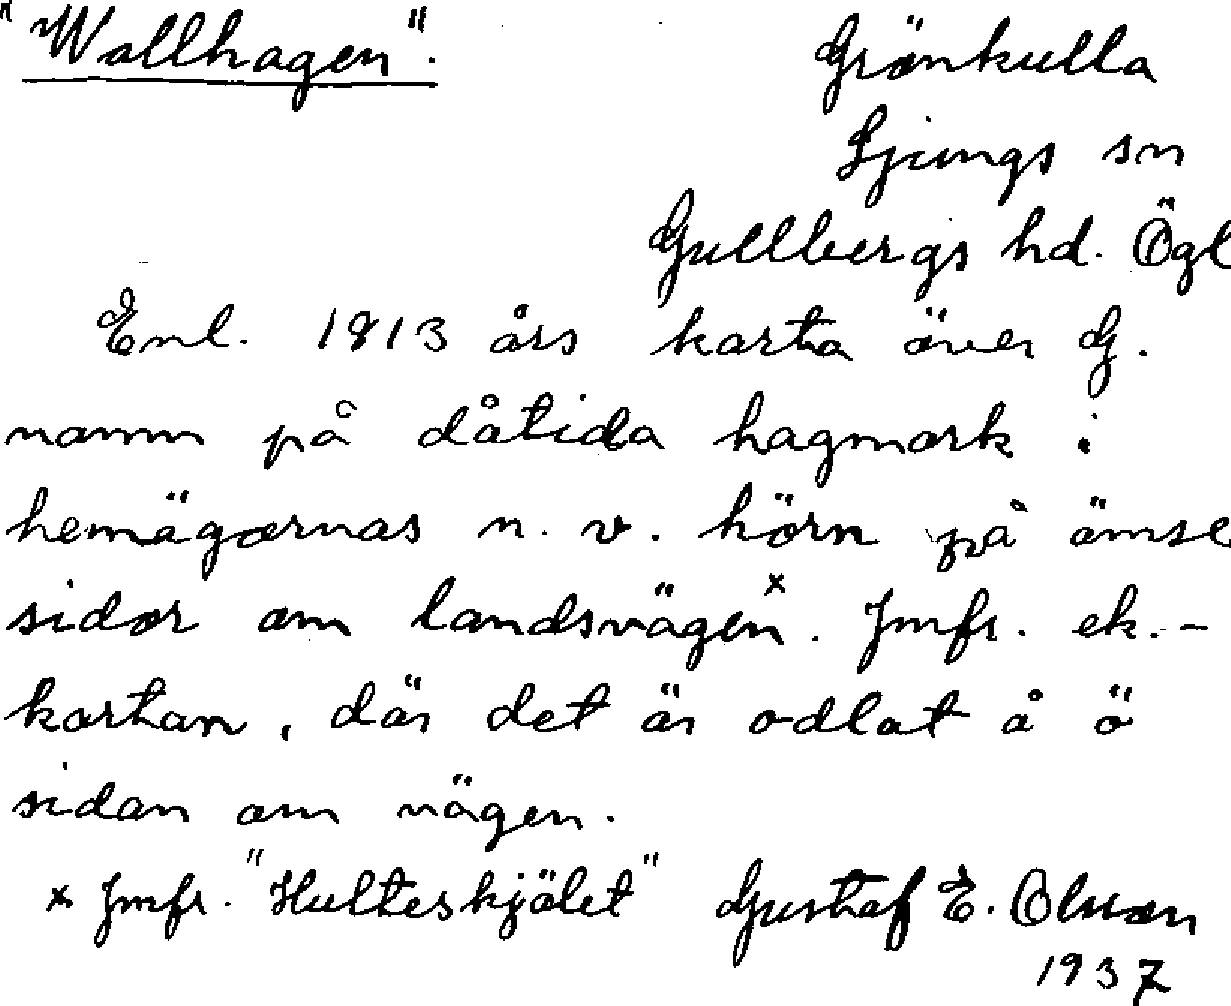 "Wallhagen".
Grönkulla
Ljungs sn
Gullbergs hd. Ögl
Enl. 1813 års karta över G.
namn på dåtida hagmark i
hemägornas n. v. hörn på ömse
sidor om landsvägen x. Jmfr. ek.-
kartan, där det är odlat å ö
sidan om vägen.
x Jmfr. "Hulteskjölet" Gustaf E. Olsson
1937